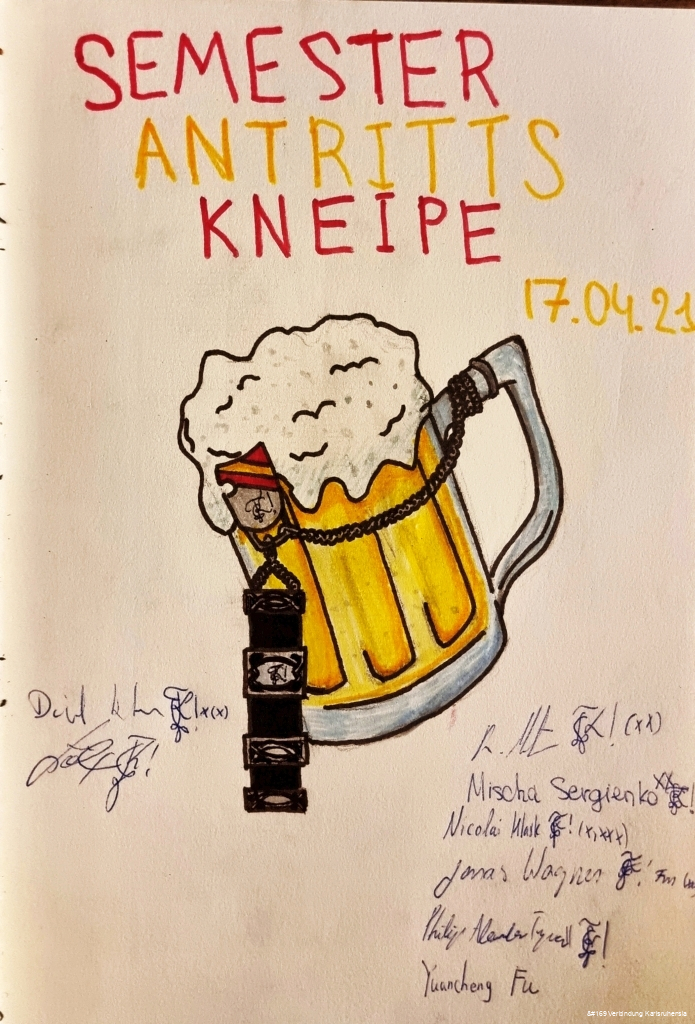 SEMESTER
ANTRITTS
KNEIPE
17.04.21
(xx)
Mischa Sergienko xx
Nicolai Klask ! (x,xxx)
Jonas Wagner
Philip Alexander
Yuancheng Fu
&#169 Verbindung Karlsruhensia